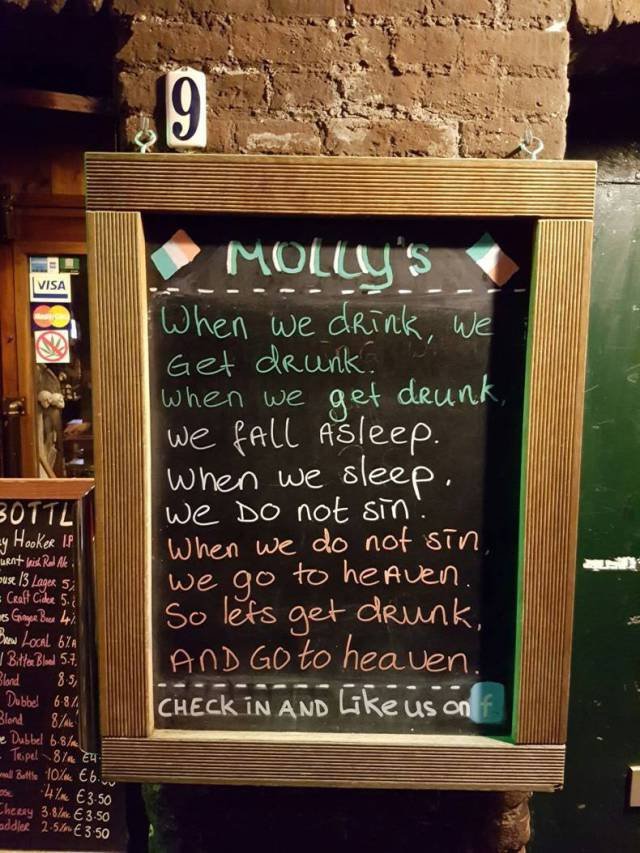 9
MOLLY's
When we drink, we
Get drunk.
when we get drunk,
we fall Asleep.
When we sleep,
we Do not sin.
When we do not sin,
we go to heaven.
So lets get drunk,
AND GO to heaven.
CHECK iN AND Like us on f
VISA
MasterCard
BOTTL
Hooker
Irish Red Ale
Lager
Craft Cider 5.
Ginger Beer 4%
Local 6%
Bitter Blond 5.7
Blond 8.5
Dubbel 6.8%
Blond 8%
Dubbel 6.8%
Tripel 8% €4
Bottle 10% €6.
4% €3.50
Cherry 3.8% €3.50
2.5% €3.50